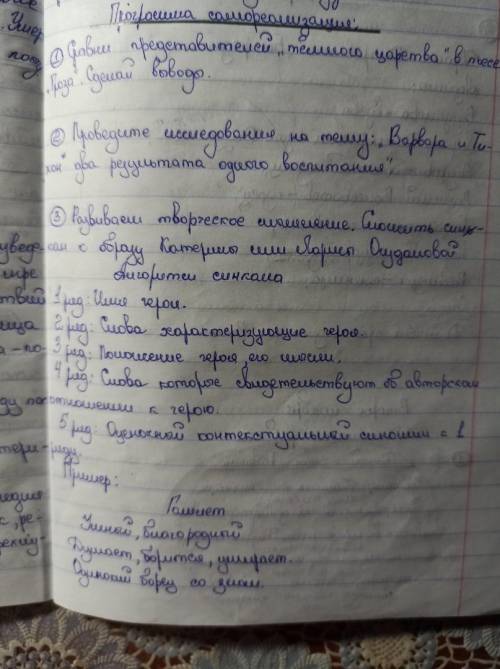 Программа самореализация:
① Сравни представителей „тёмного царства" в пьесе
„Гроза". Сделай выводы.
② Проведите исследования на тему: „Варвара и Ти-
хон" два результата одного воспитания".
③ Развиваем творческое мышление. Сложить синк-
вен о образу Катерины или Ларисы Огудаловой
Алгоритм синквна
1 ряд: Имя героя.
2 ряд: Слова характеризующие героя.
3 ряд: Положение героя, его мысли.
4 ряд: Слова которое свидетельствуют об авторском
отношении к герою.
5 ряд: Оценочной контекстуальной синоним с 1
ряду.
Пример:
Гамлет
Умной, благородной
Думает, борится, умирает.
Одинокий борец со злом.